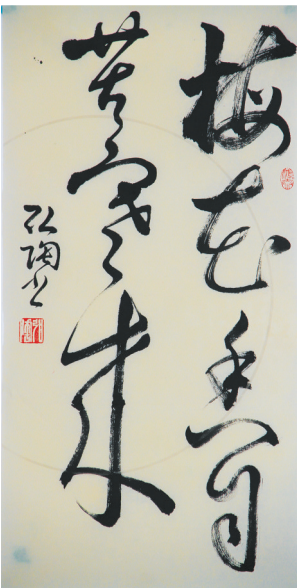 梅花香自
苦寒来
弘陶书